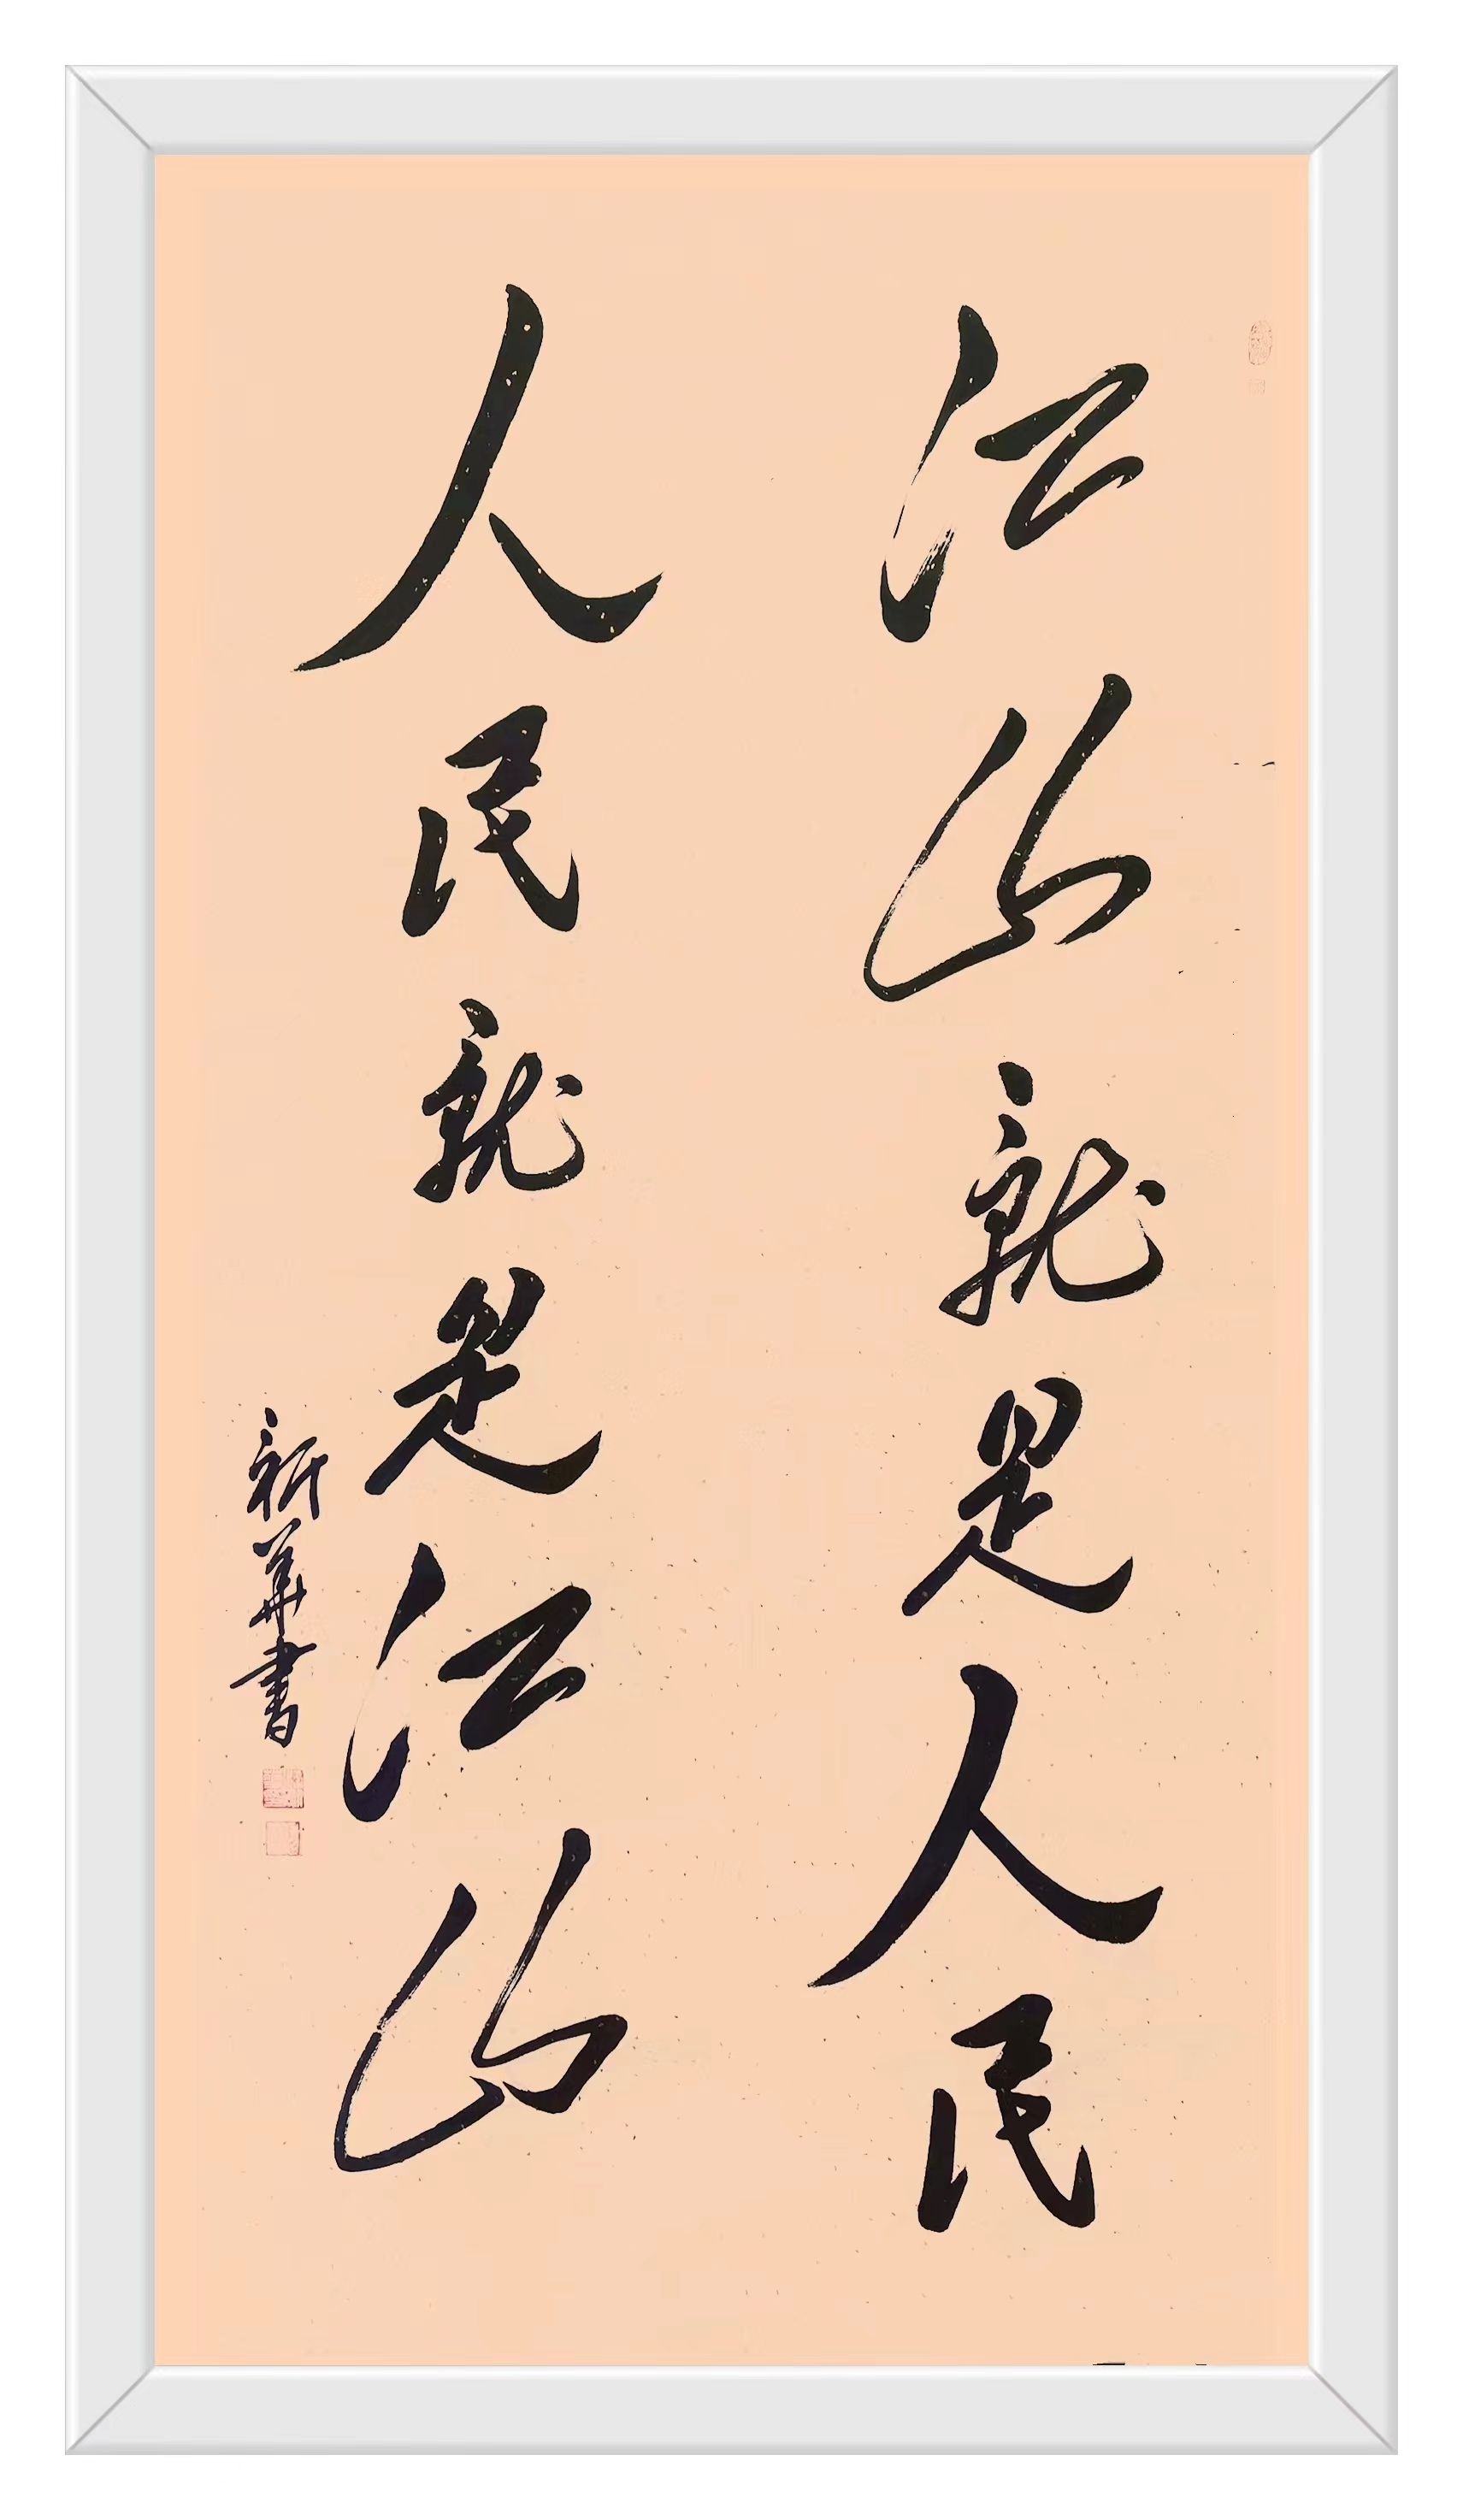 江山就是人民
人民就是江山
新华书